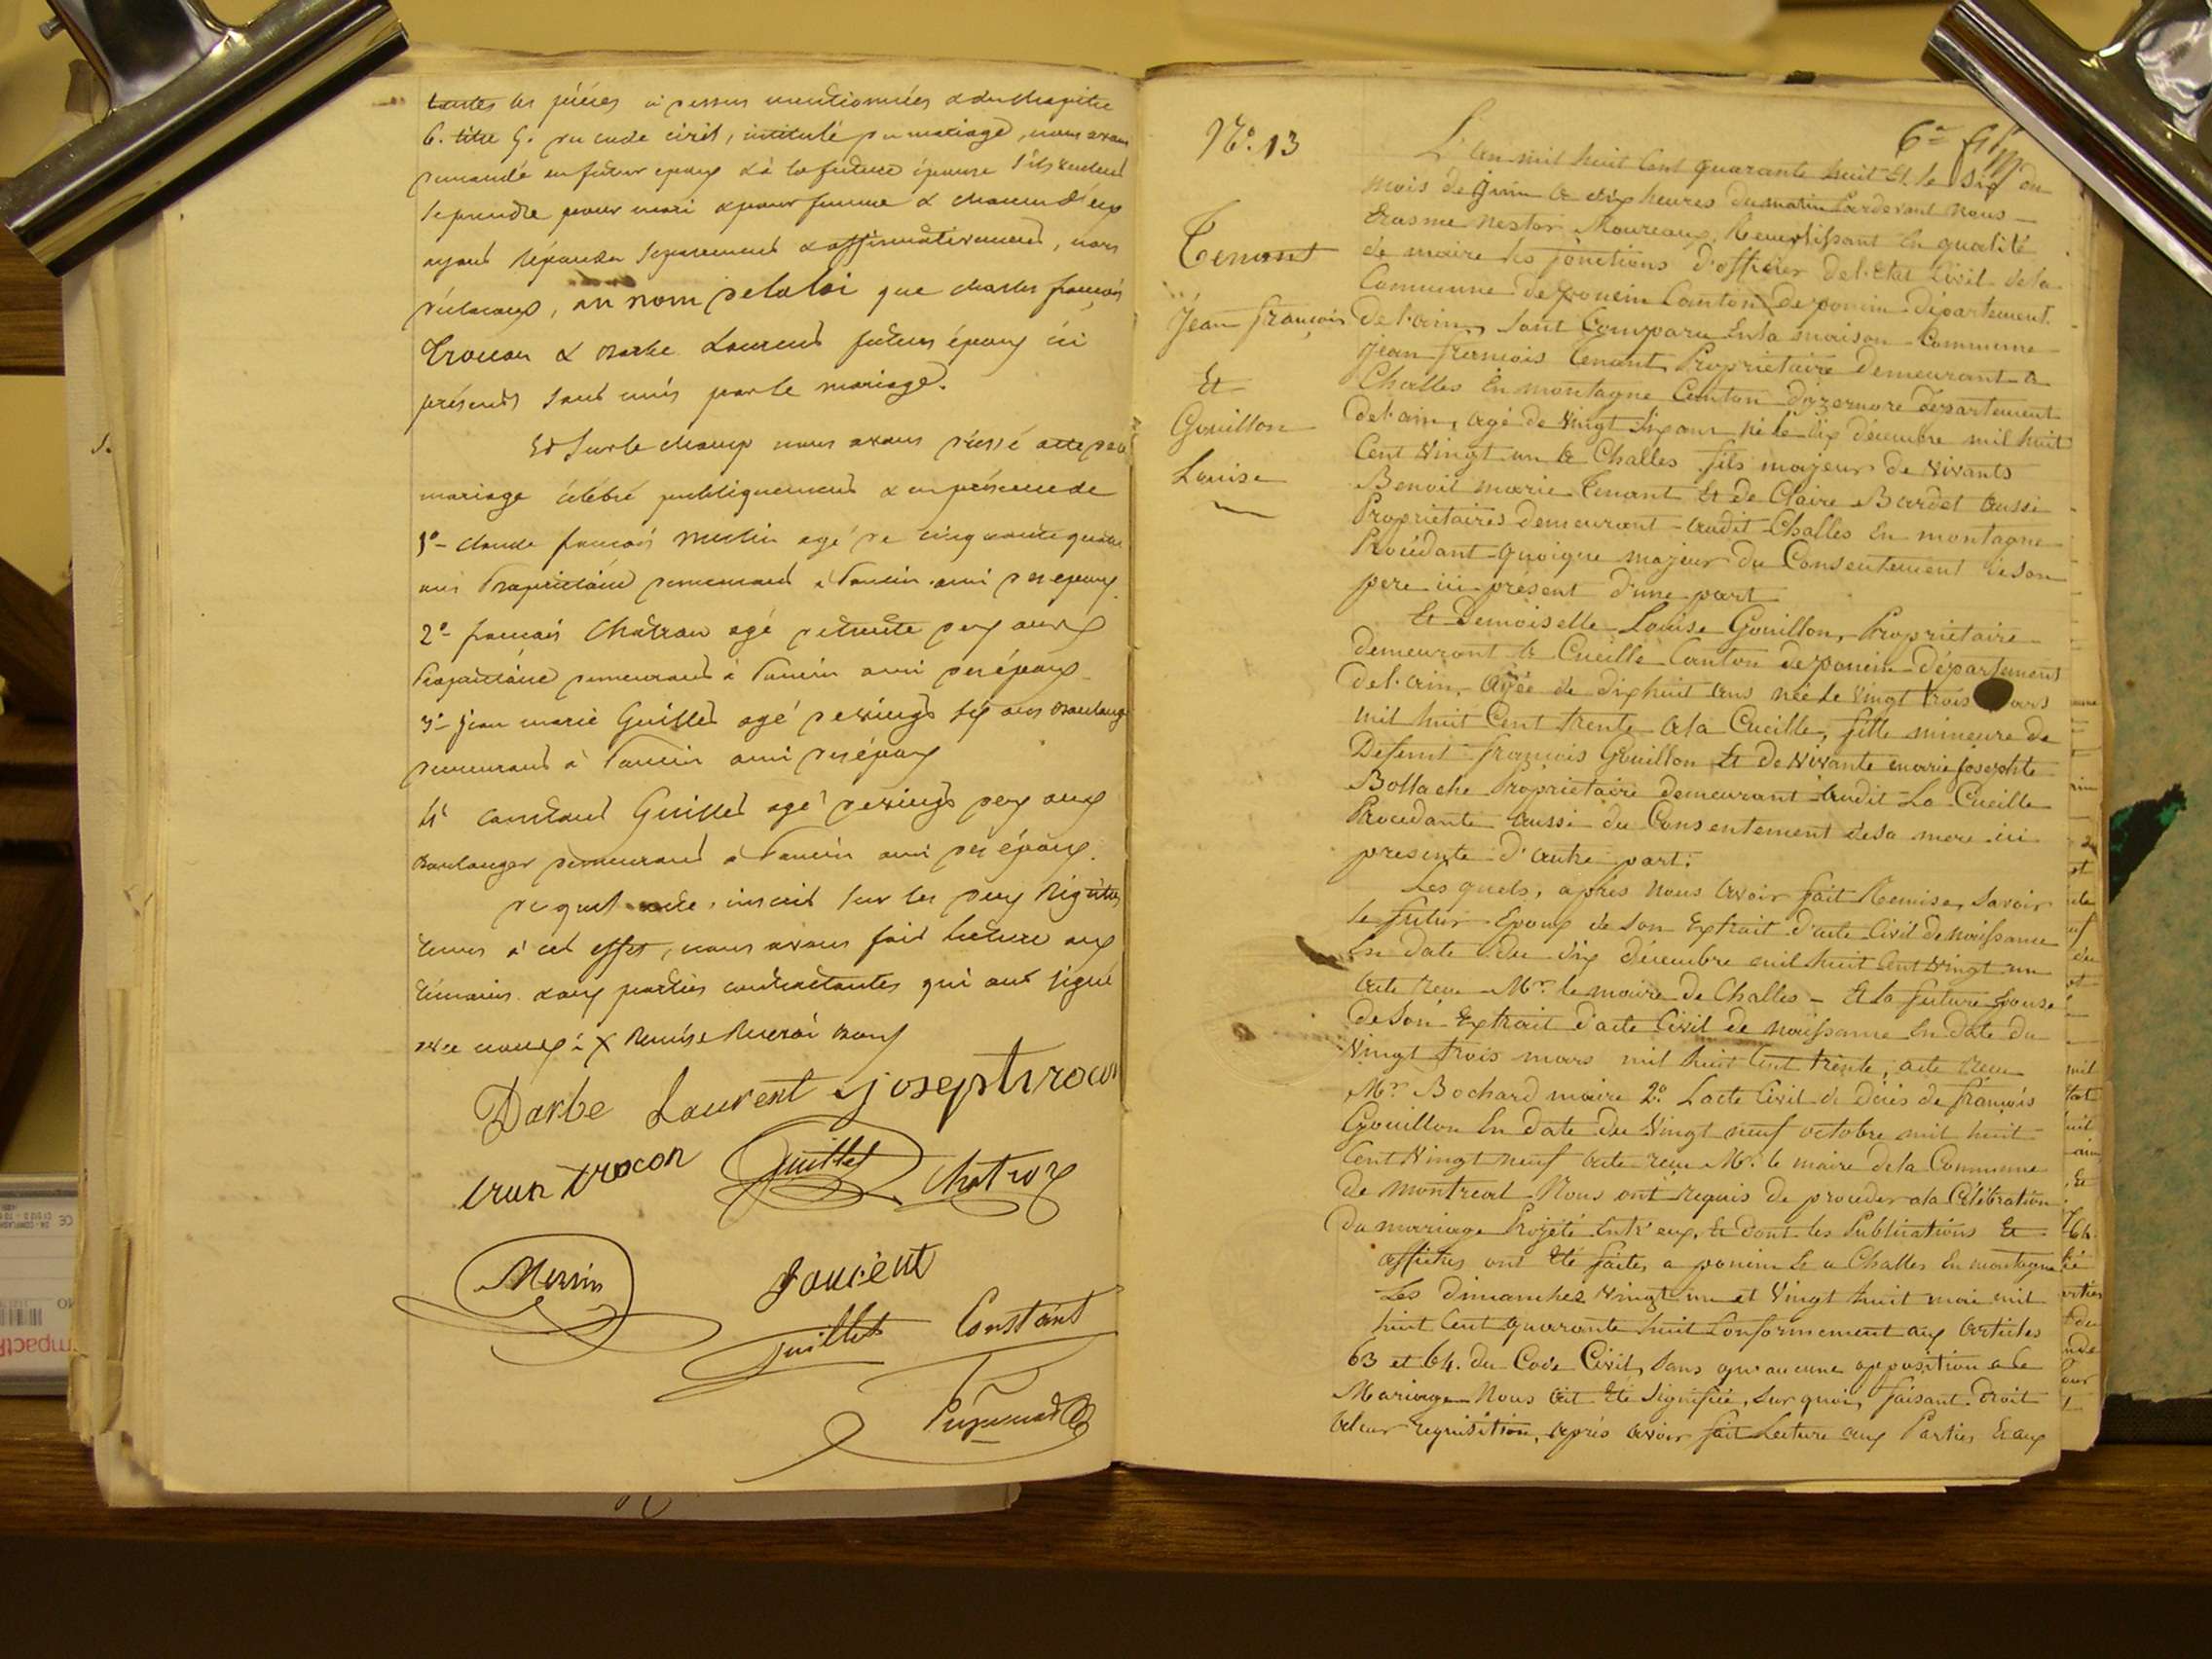 toutes les pièces ci dessus mentionnées & du chapitre
6. titre 5. du code civil, intitulé du mariage, nous avons
demandé au futur epoux & à la future épouse s'ils veulent
se prendre pour mari & pour femme & chacun d'eux
ayant répondu separement & affirmativement, nous
déclarons, au nom de la loi que charles françois
trocon & Barbe Laurent futurs époux ici
présents sont unis par le mariage.
Et sur le champ nous avons dressé acte de ce
mariage célébré publiquement & en présence de
1º- claude françois agé de cinquante quatre
ans Propriétaire demeurant à Poncin ami des epoux.
2º- françois Chatron agé de trente deux ans
Propriétaire demeurant à Poncin ami des époux
3º- jean marie Guillet agé de vingt six ans Boulanger
demeurant à Poncin ami des époux
4º constant Guillet agé de vingt deux ans
Boulanger demeurant à Poncin ami des époux.
du quel acte, inscrit sur les deux Régistres
tenus à cet effet, nous avons fait lecture aux
témoins & aux parties contractantes qui ont signé
avec nous
Barbe Laurent joseph trocon
trocon Guillet Chatron
Laurent
Guillet Constant
Nº. 13
Tenant
Jean françois
Et
Gouillon
Louise
L'an mil huit Cent quarante huit Et le six du
mois de juin a dix heures du matin Pardevant nous
Erasme nestor Moureaux, Remplissant En qualité
de maire les fonctions d'officier de l'Etat Civil de la
Commune de poncin Canton de poncin département
de l'ain, sont Comparu En la maison Commune
Jean francois Tenant Proprietaire Demeurant a
Challes En montagne Canton d'izernore département
de l'ain, agé de vingt six ans né le dix décembre mil huit
Cent vingt un a Challes fils majeur de vivants
Benoit marie Tenant Et de Claire Bardet aussi
Proprietaires demeurant audit Challes En montagne
Procédant quoique majeur du Consentement de son
pere ici present d'une part
Et Demoiselle Louise Gouillon, Proprietaire
demeurant a Cueille Canton de poncin département
de l'ain, agée de dix huit ans née le vingt trois mars
mil huit Cent trente a la Cueille, fille mineure de
Defunt françois Gouillon Et de vivante marie josephte
Bollache Propriétaire demeurant audit La Cueille
Procedante aussi du Consentement de sa mere ici
presente d'autre part.
Les quels, après nous avoir fait Remise, savoir
le futur Epoux de son Extrait d'acte Civil de naissance
En date du dix décembre mil huit Cent vingt un
acte recu Mr. le maire de Challes - Et la future Epouse
de son Extrait d'acte Civil de naissance En date du
vingt trois mars mil huit Cent trente, acte recu
Mr. Bochard maire 2º. Lacte Civil de décés de françois
Gouillon En date du vingt neuf octobre mil huit
Cent vingt neuf acte recu Mr. le maire de la Commune
de montreal Nous ont requis de proceder a la Célébration
du mariage Projété Entr'eux, Et dont les Publications Et
affiches ont Eté faites a poncin Et a Challes En montagne
Les dimanches vingt un et vingt huit mai mil
huit Cent quarante huit Conformement aux articles
63 et 64. du Code Civil, sans qu'aucune opposition a le
Mariage Nous ait Eté signifiée, sur quoi, faisant droit
a leur requisition, après avoir fait Lecture aux Parties Et aux